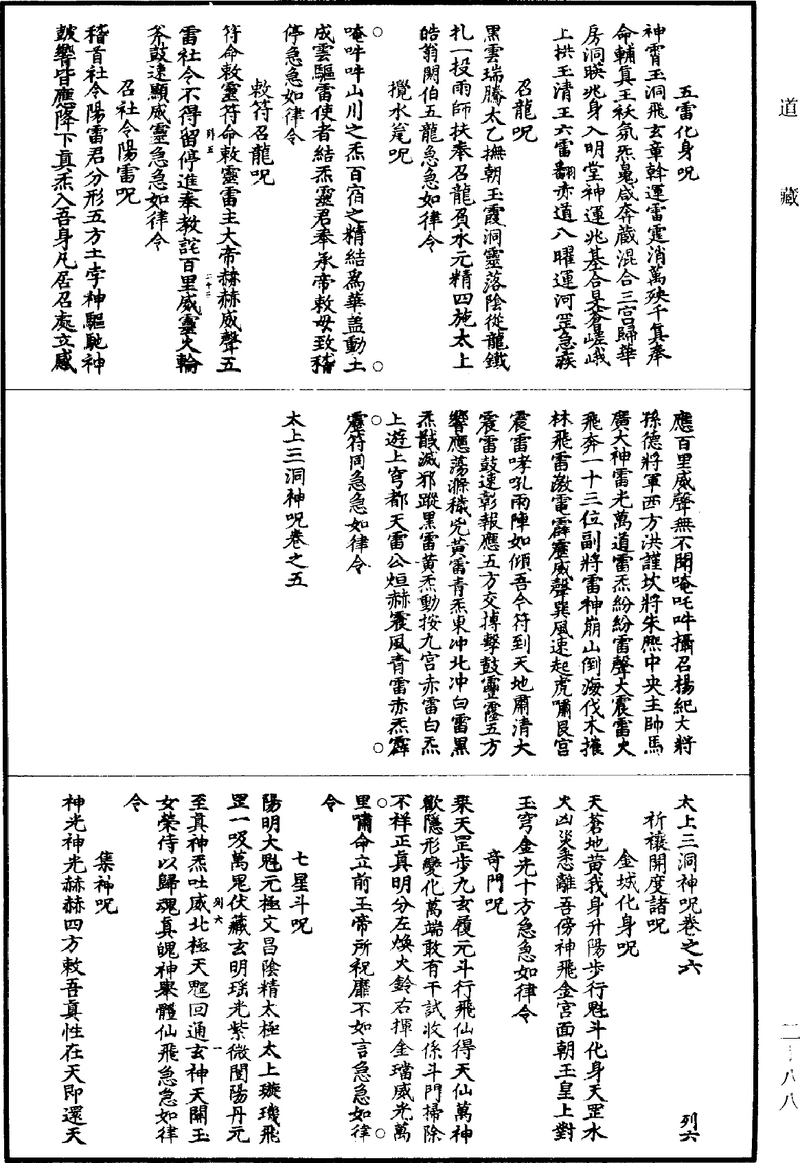 道藏
五雷化身呪
神霄玉洞飛玄章斡運雷霆消萬殃千真奉
命輔真王袄氛炁鼂咸奔藏混合三宮歸華
房洞暎兆身入明堂神運兆基合昊蒼嵯峨
上拱玉清王六雷翻赤道八曜運河罡急疾
召龍呪
黑雲瑞騰太乙撫朝玉霞洞靈落陰從龍鐵
札一投雨師扶奉召龍負水元精四施太上
皓翁閼伯五龍急急如律令
攪水㝔呪
唵吽吽山川之炁百宿之精結爲華盖動土
成雲驅雷使者結炁靈君奉承帝敕毋致稽
停急急如律令
敕符召龍呪
符命敕靈符命敕靈雷主大帝赫赫威聲五
雷社令不得留停進奉教詫百里威靈火輪
斧鼓速顯威靈急急如律令
召社令陽雷呪
稽首社令陽雷君分形五方土孛神驅馳神
皷響皆應降下真炁入吾身凡居召處立感
應百里威聲無不聞唵吒吽攝召楊紀大將
孫德將軍西方洪謹坎將朱熙中央主帥馬
廣大神雷光萬道雷炁紛紛雷聲大震雷火
飛奔一十三位副將雷神崩山倒海伐木摧
林飛雷激電霹靂威聲巽風速起虎嘯艮宮
震雷哮吼雨陣如傾吾令符到天地肅清大
震雷鼓速彰報應五方交搏擊鼓靈霳五方
響應蕩滌穢兇黃雷青炁東冲北冲白雷黑
炁戩滅邪蹤黑雷黃炁動按九宮赤雷白炁
上遊上穹都天雷公烜赫震風青雷赤炁霹
靂符同急急如律令
太上三洞神呪卷之五
太上三洞神呪卷之六
列六
祈禳開度諸呪
金城化身呪
天蒼地黃我身升陽步行魁斗化身天罡水
火凶災急離吾傍神飛金宮面朝玉皇上對
玉穹金光十方急急如律令
奇門呪
乘天罡步九玄履元斗行飛仙得天仙萬神
歡隱形變化萬端敢有干試收係斗門掃除
不祥正真明分左煥火鈴右揮金璫威光萬
里嘯命立前玉帝所祝靡不如言急急如律
令
七星斗呪
陽明大魁元極文昌陰精太極太上璇璣飛
罡一吸萬鬼伏藏玄明瑶光紫微闓陽丹元
至真神炁吐威北極天䰢回通玄神天關玉
女榮侍以歸魂真魄神舉體仙飛急急如律
令
集神呪
神光神光赫赫四方敕吾真性在天即還天